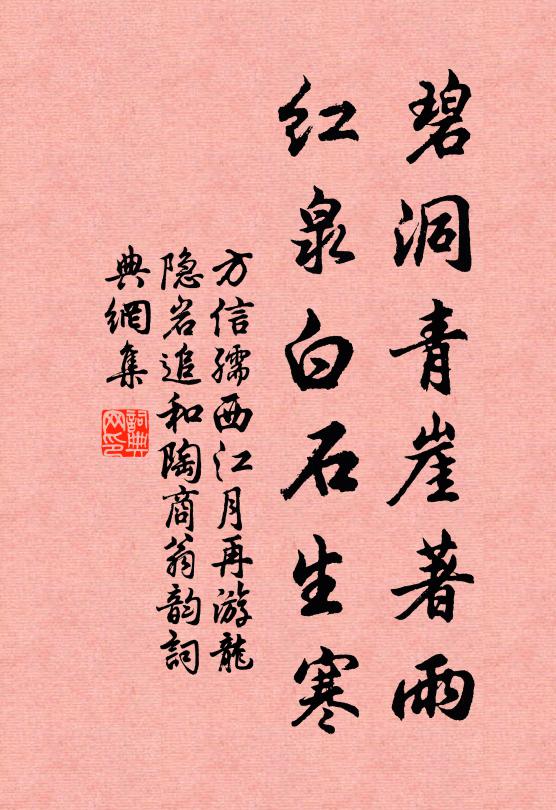 碧洞青崖著雨
红泉白石生寒
方信孺西江月再游龍
隐岩追和陶商翁韵詞
典網集
詞典网印